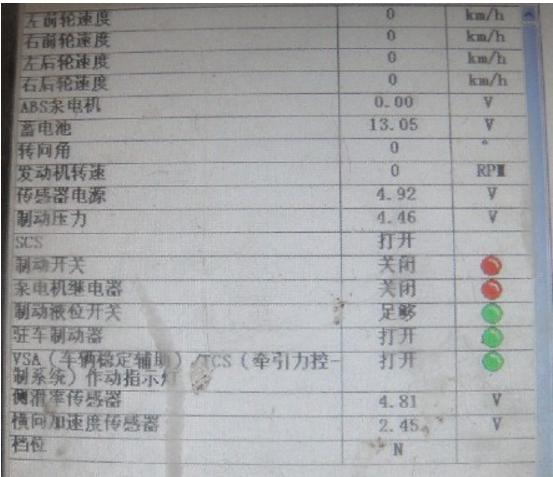 左前轮速度 0 km/h
右前轮速度 0 km/h
左后轮速度 0 km/h
右后轮速度 0 km/h
ABS泵电机 0.00 V
蓄电池 13.05 V
转向角 0 °
发动机转速 0 RPM
传感器电源 4.92 V
制动压力 4.46 V
SCS 打开
制动开关 关闭
泵电机继电器 关闭
制动液位开关 足够
驻车制动器 打开
VSA（车辆稳定辅助）/TCS（牵引力控- 打开
制系统）作动指示灯
侧滑率传感器 4.81 V
横向加速度传感器 2.45 V
档位 N